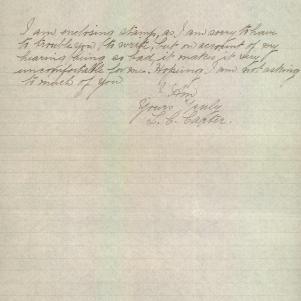 I am enclosing stamp, as I am sorry to have
to trouble you, to write, but on account of my
hearing being so bad, it makes it very
uncomfortable for me. Hokeing I am not asking
to much of you
I Am
Yours Truly
L. C. Carter.